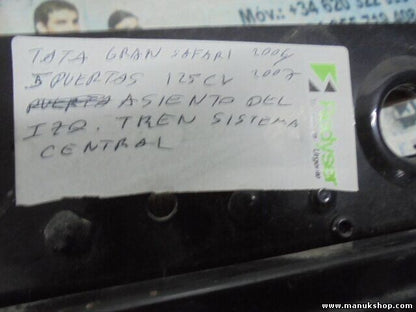 Móv.: +34 620 322
TATA GRAN SAFARI 2006
5 PUERTAS 125CV 2007
PUERTA ASIENTO DEL
IZQ. TREN SISTEMA
CENTRAL
www.manukshop.com